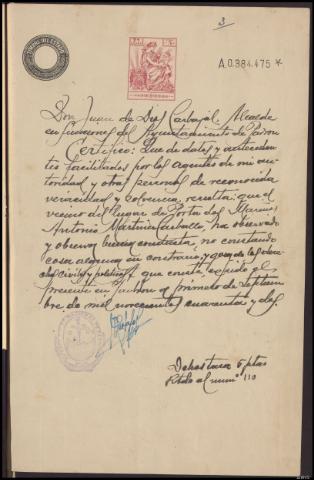 3
A.0.384.475 *
Don Juan de Dios Carbajal, Alcalde
en funciones del Ayuntamiento de Padron
Certifico: Que de datos y antecedentes
facilitados por los agentes de mi au-
toridad y otras personas de reconocida
veracidad y solvencia, resulta: que el
vecino del lugar de Porto del
Antonio Martinez Carballo, ha observado
y observa buena conducta, no constando
cosa alguna en contrario, y goza de los dere-
chos civiles y politicos que conste, expido el
presente en Padron a primero de septiem-
bre de mil novecientos cuarenta y dos.
Dehostara 6 ptas
Rtdo al num° 110